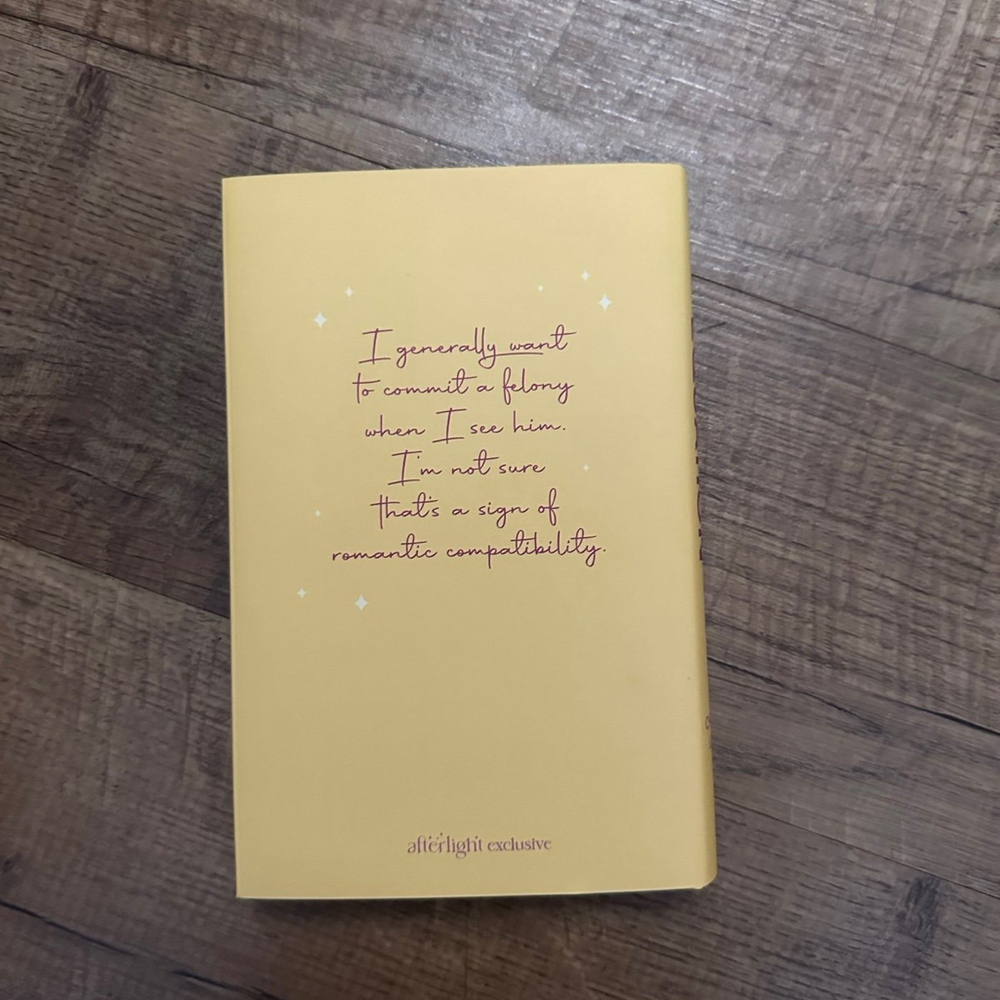 I generally want
to commit a felony
when I see him.
I'm not sure
that's a sign of
romantic compatibility.
afterlight exclusive